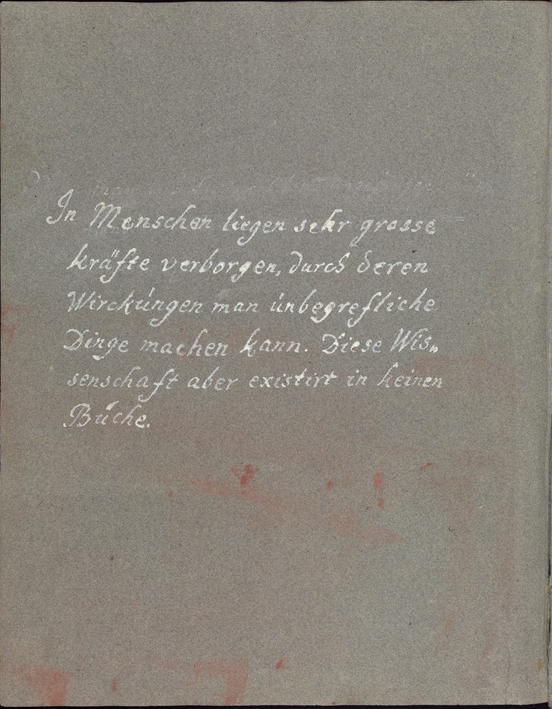 In Menschen liegen sehr grosse
kräfte verborgen, durch deren
Wirckungen man unbegrefliche
Dinge machen kann. Diese Wis„
senschaft aber existirt in keinen
Buche.